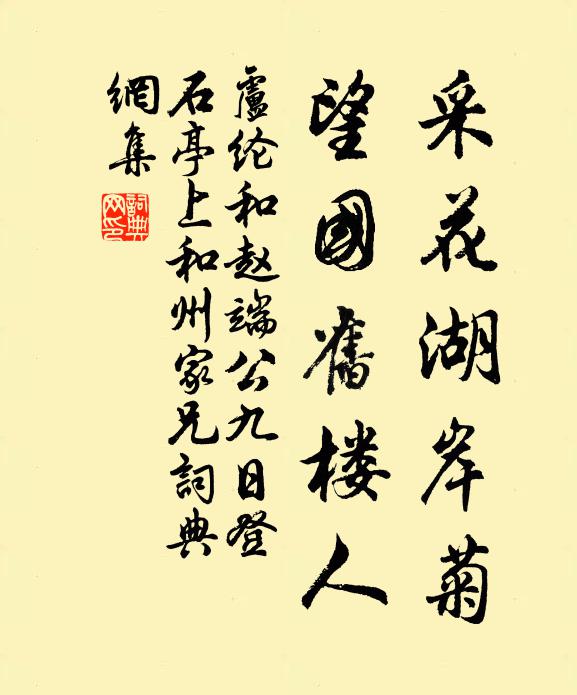 采花湖岸菊
望國舊楼人
盧纶和赵端公九日登
石亭上和州家兄詞典
網集
詞典
网印